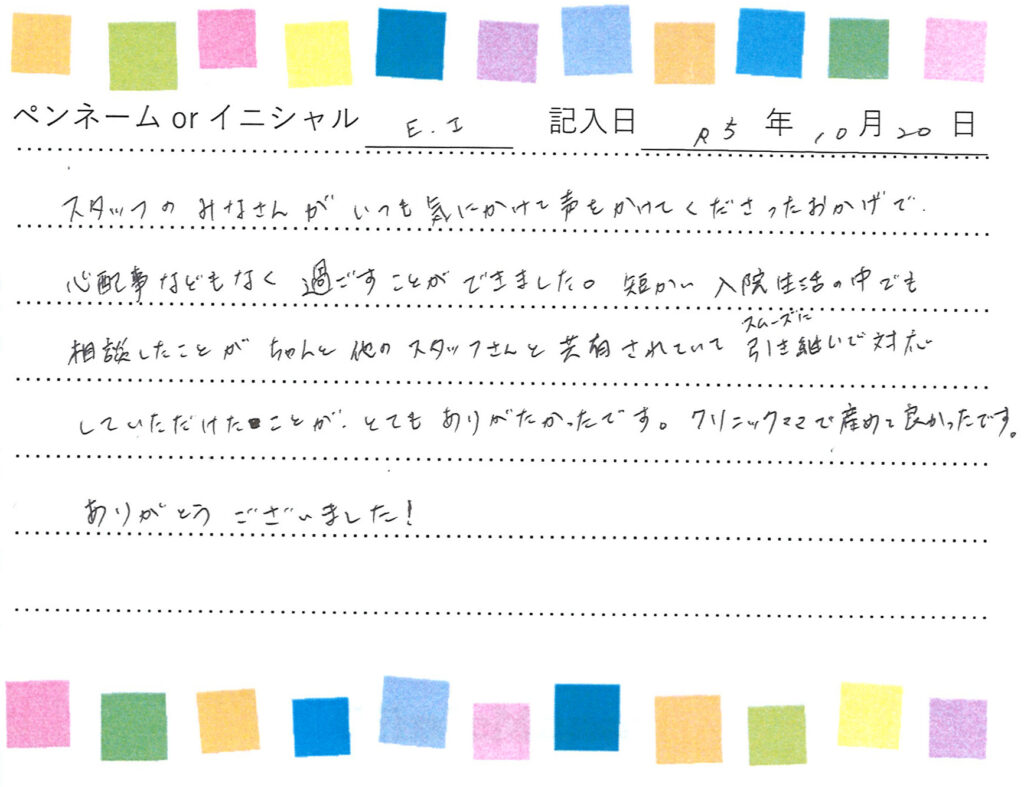 ペンネーム or イニシャル E.I 記入日 R5 年 10 月 20 日
スタッフの みなさんが いつも気にかけて声をかけてくださったおかげで、
心配事などもなく 過ごすことができました。短かい 入院生活の中でも
スムーズに
相談したことが ちゃんと 他の スタッフさんと 共有されていて 引き継いで対応
していただけたことが、とても ありがたかったです。クリニックママで産めて良かったです。
ありがとう ございました!